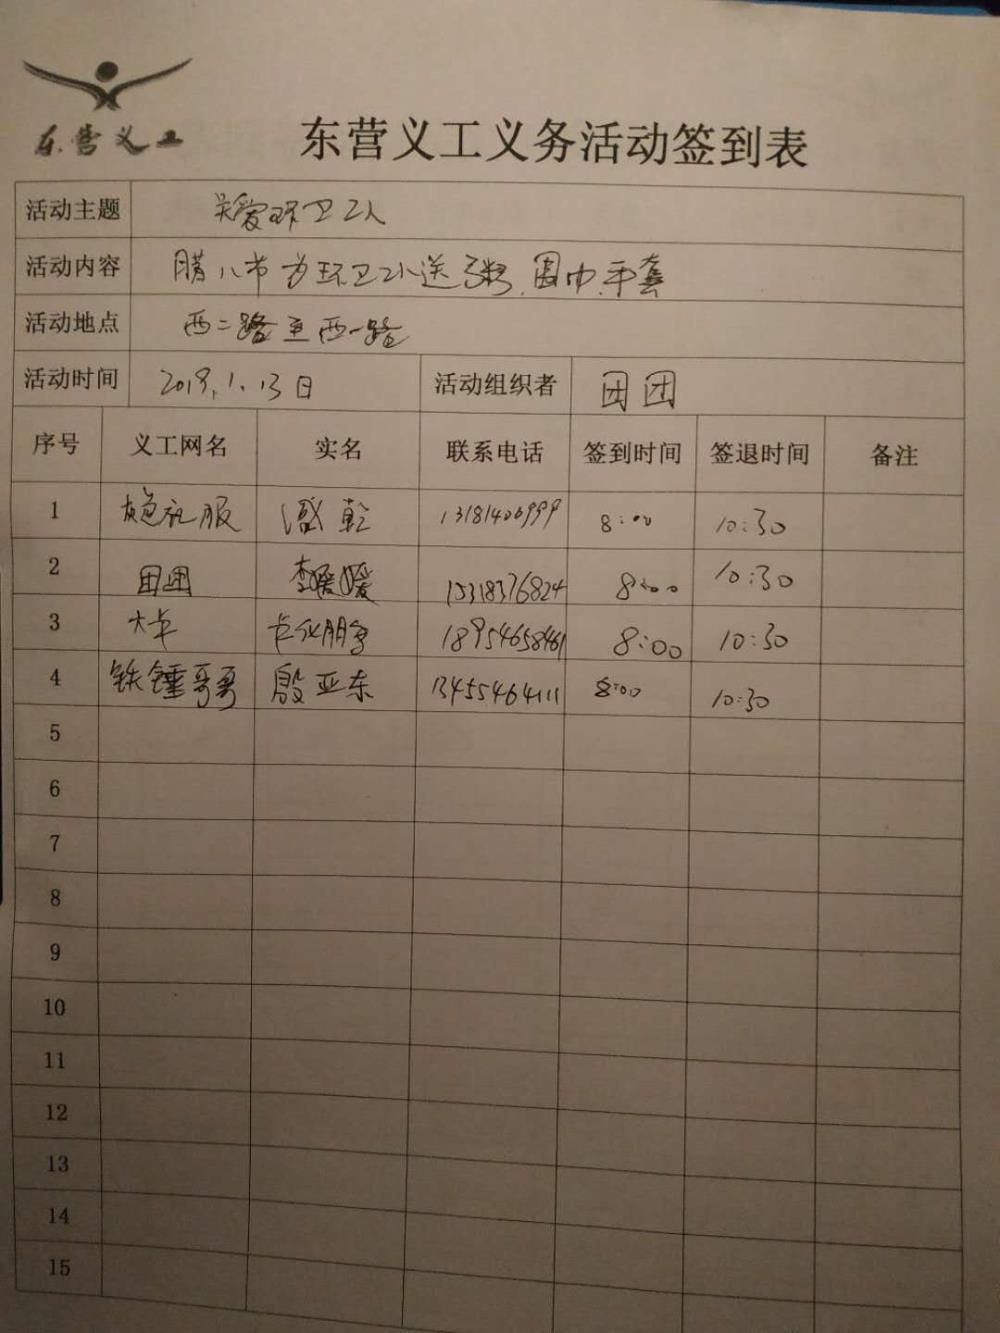 东营义工
东营义工义务活动签到表
活动主题 关爱环卫工人
活动内容 腊八节为环卫工人送粥、围巾、手套
活动地点 西二路至西一路
活动时间 2019.1.13日 活动组织者 团团
序号 义工网名 实名 联系电话 签到时间 签退时间 备注
1 13181406999 8:00 10:30
2 团团 李媛媛 15318376824 8:00 10:30
3 大卡 18954658461 8:00 10:30
4 铁锤哥哥 殷亚东 13455464111 8:00 10:30
5
6
7
8
9
10
11
12
13
14
15